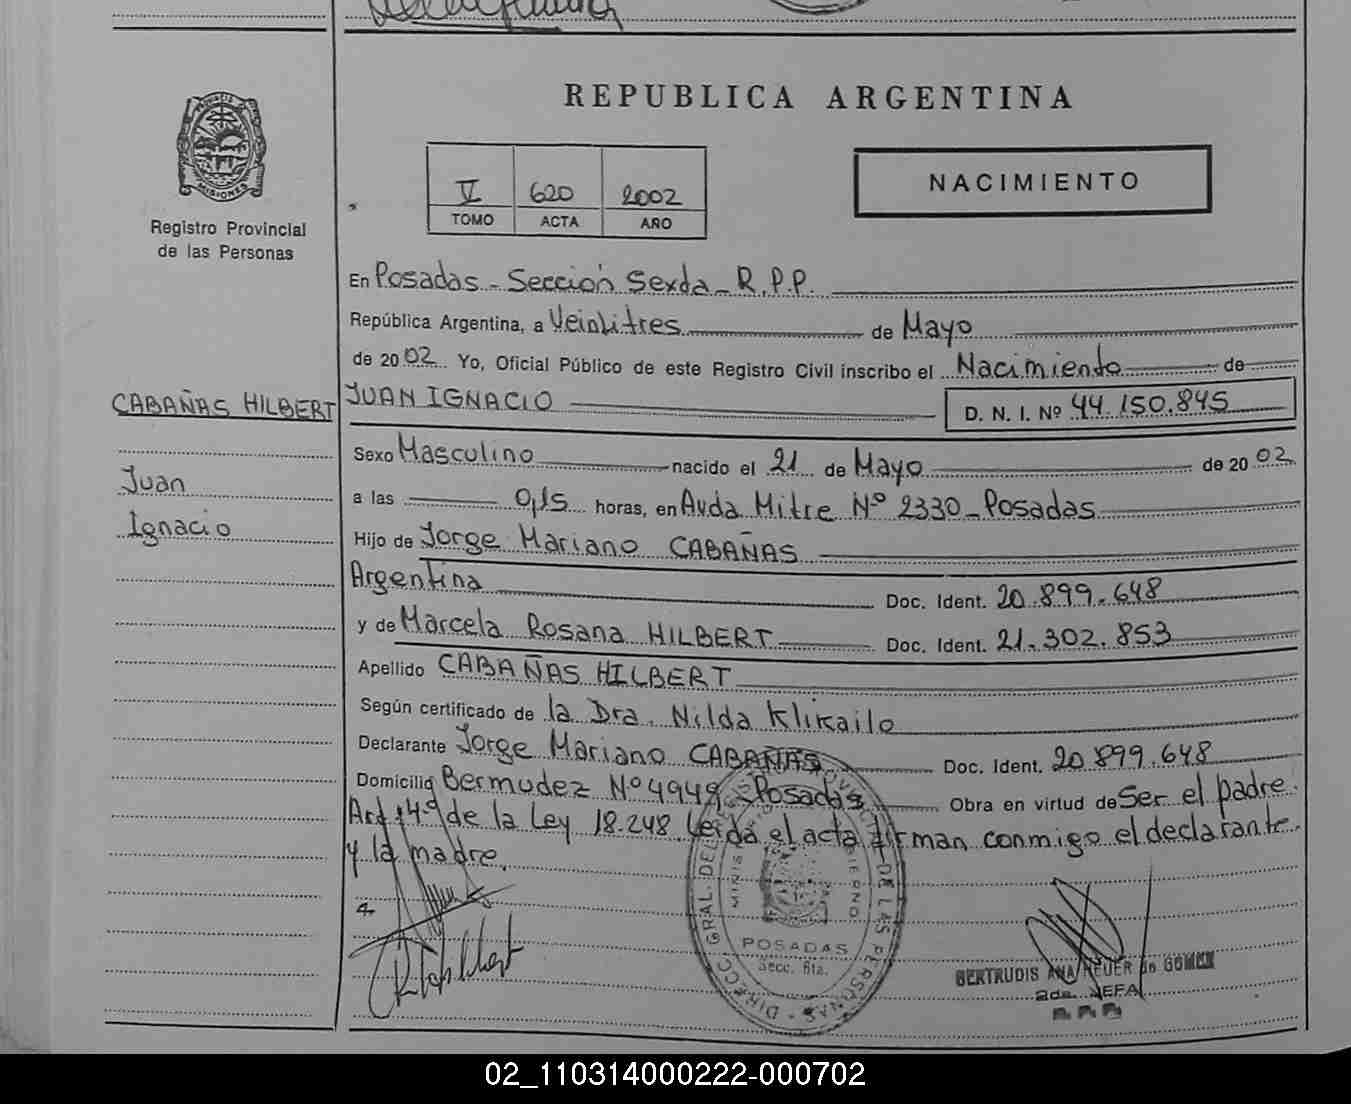 REPUBLICA ARGENTINA
PROVINCIA DE
MISIONES
Registro Provincial
de las Personas
V 620 2002
TOMO ACTA AÑO
NACIMIENTO
En Posadas - Sección Sexta - R.P.P.
República Argentina, a Veintitres de Mayo
de 2002 Yo, Oficial Público de este Registro Civil inscribo el Nacimiento de
CABAÑAS HILBERT
JUAN IGNACIO D. N. I. Nº 44.150.845
Juan
Ignacio
Sexo Masculino nacido el 21 de Mayo de 2002
a las 0,15 horas, en Avda Mitre Nº 2330 - Posadas
Hijo de Jorge Mariano CABAÑAS
Argentina Doc. Ident. 20.899.648
y de Marcela Rosana HILBERT Doc. Ident. 21.302.853
Apellido CABAÑAS HILBERT
Según certificado de la Dra. Nilda Klikailo
Declarante Jorge Mariano CABAÑAS Doc. Ident. 20.899.648
Domicilio Bermudez Nº 4949 - Posadas Obra en virtud de Ser el padre.
Art 4º de la Ley 18.248 Leída el acta firman conmigo el declarante
y la madre.
POSADAS
Secc. 6ta.
BERTRUDIS ANA HEUER de GOMEZ
2da. JEFA
02_110314000222-000702